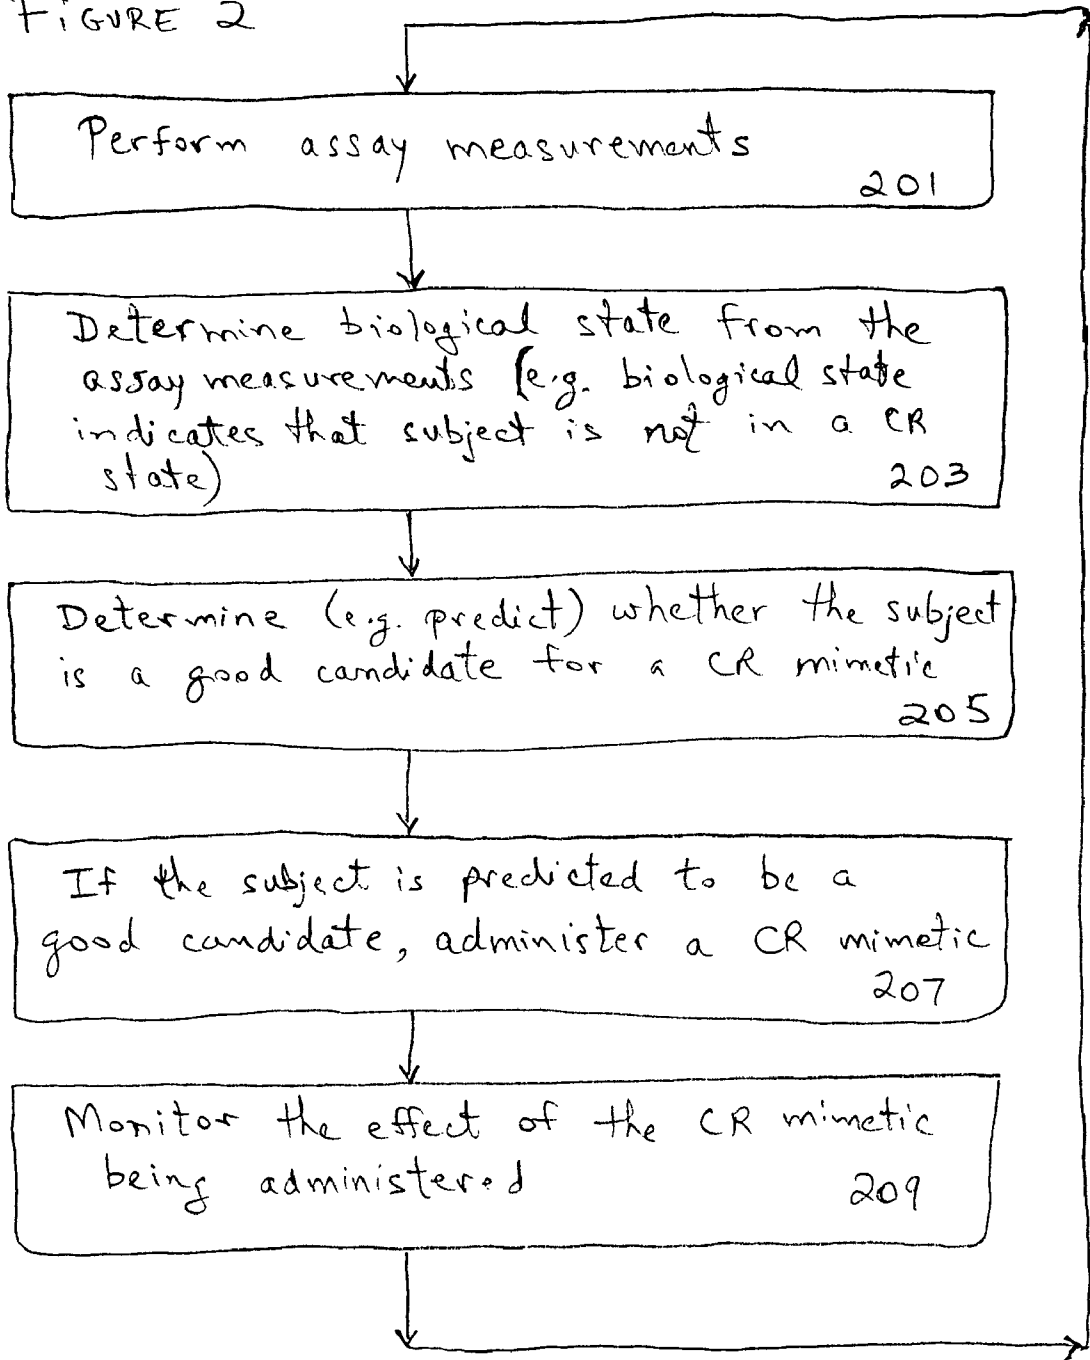 FIGURE 2
Perform assay measurements
201
Determine biological state from the
assay measurements (e.g. biological state
indicates that subject is not in a CR
state)
203
Determine (e.g. predict) whether the subject
is a good candidate for a CR mimetic
205
If the subject is predicted to be a
good candidate, administer a CR mimetic
207
Monitor the effect of the CR mimetic
being administered
209